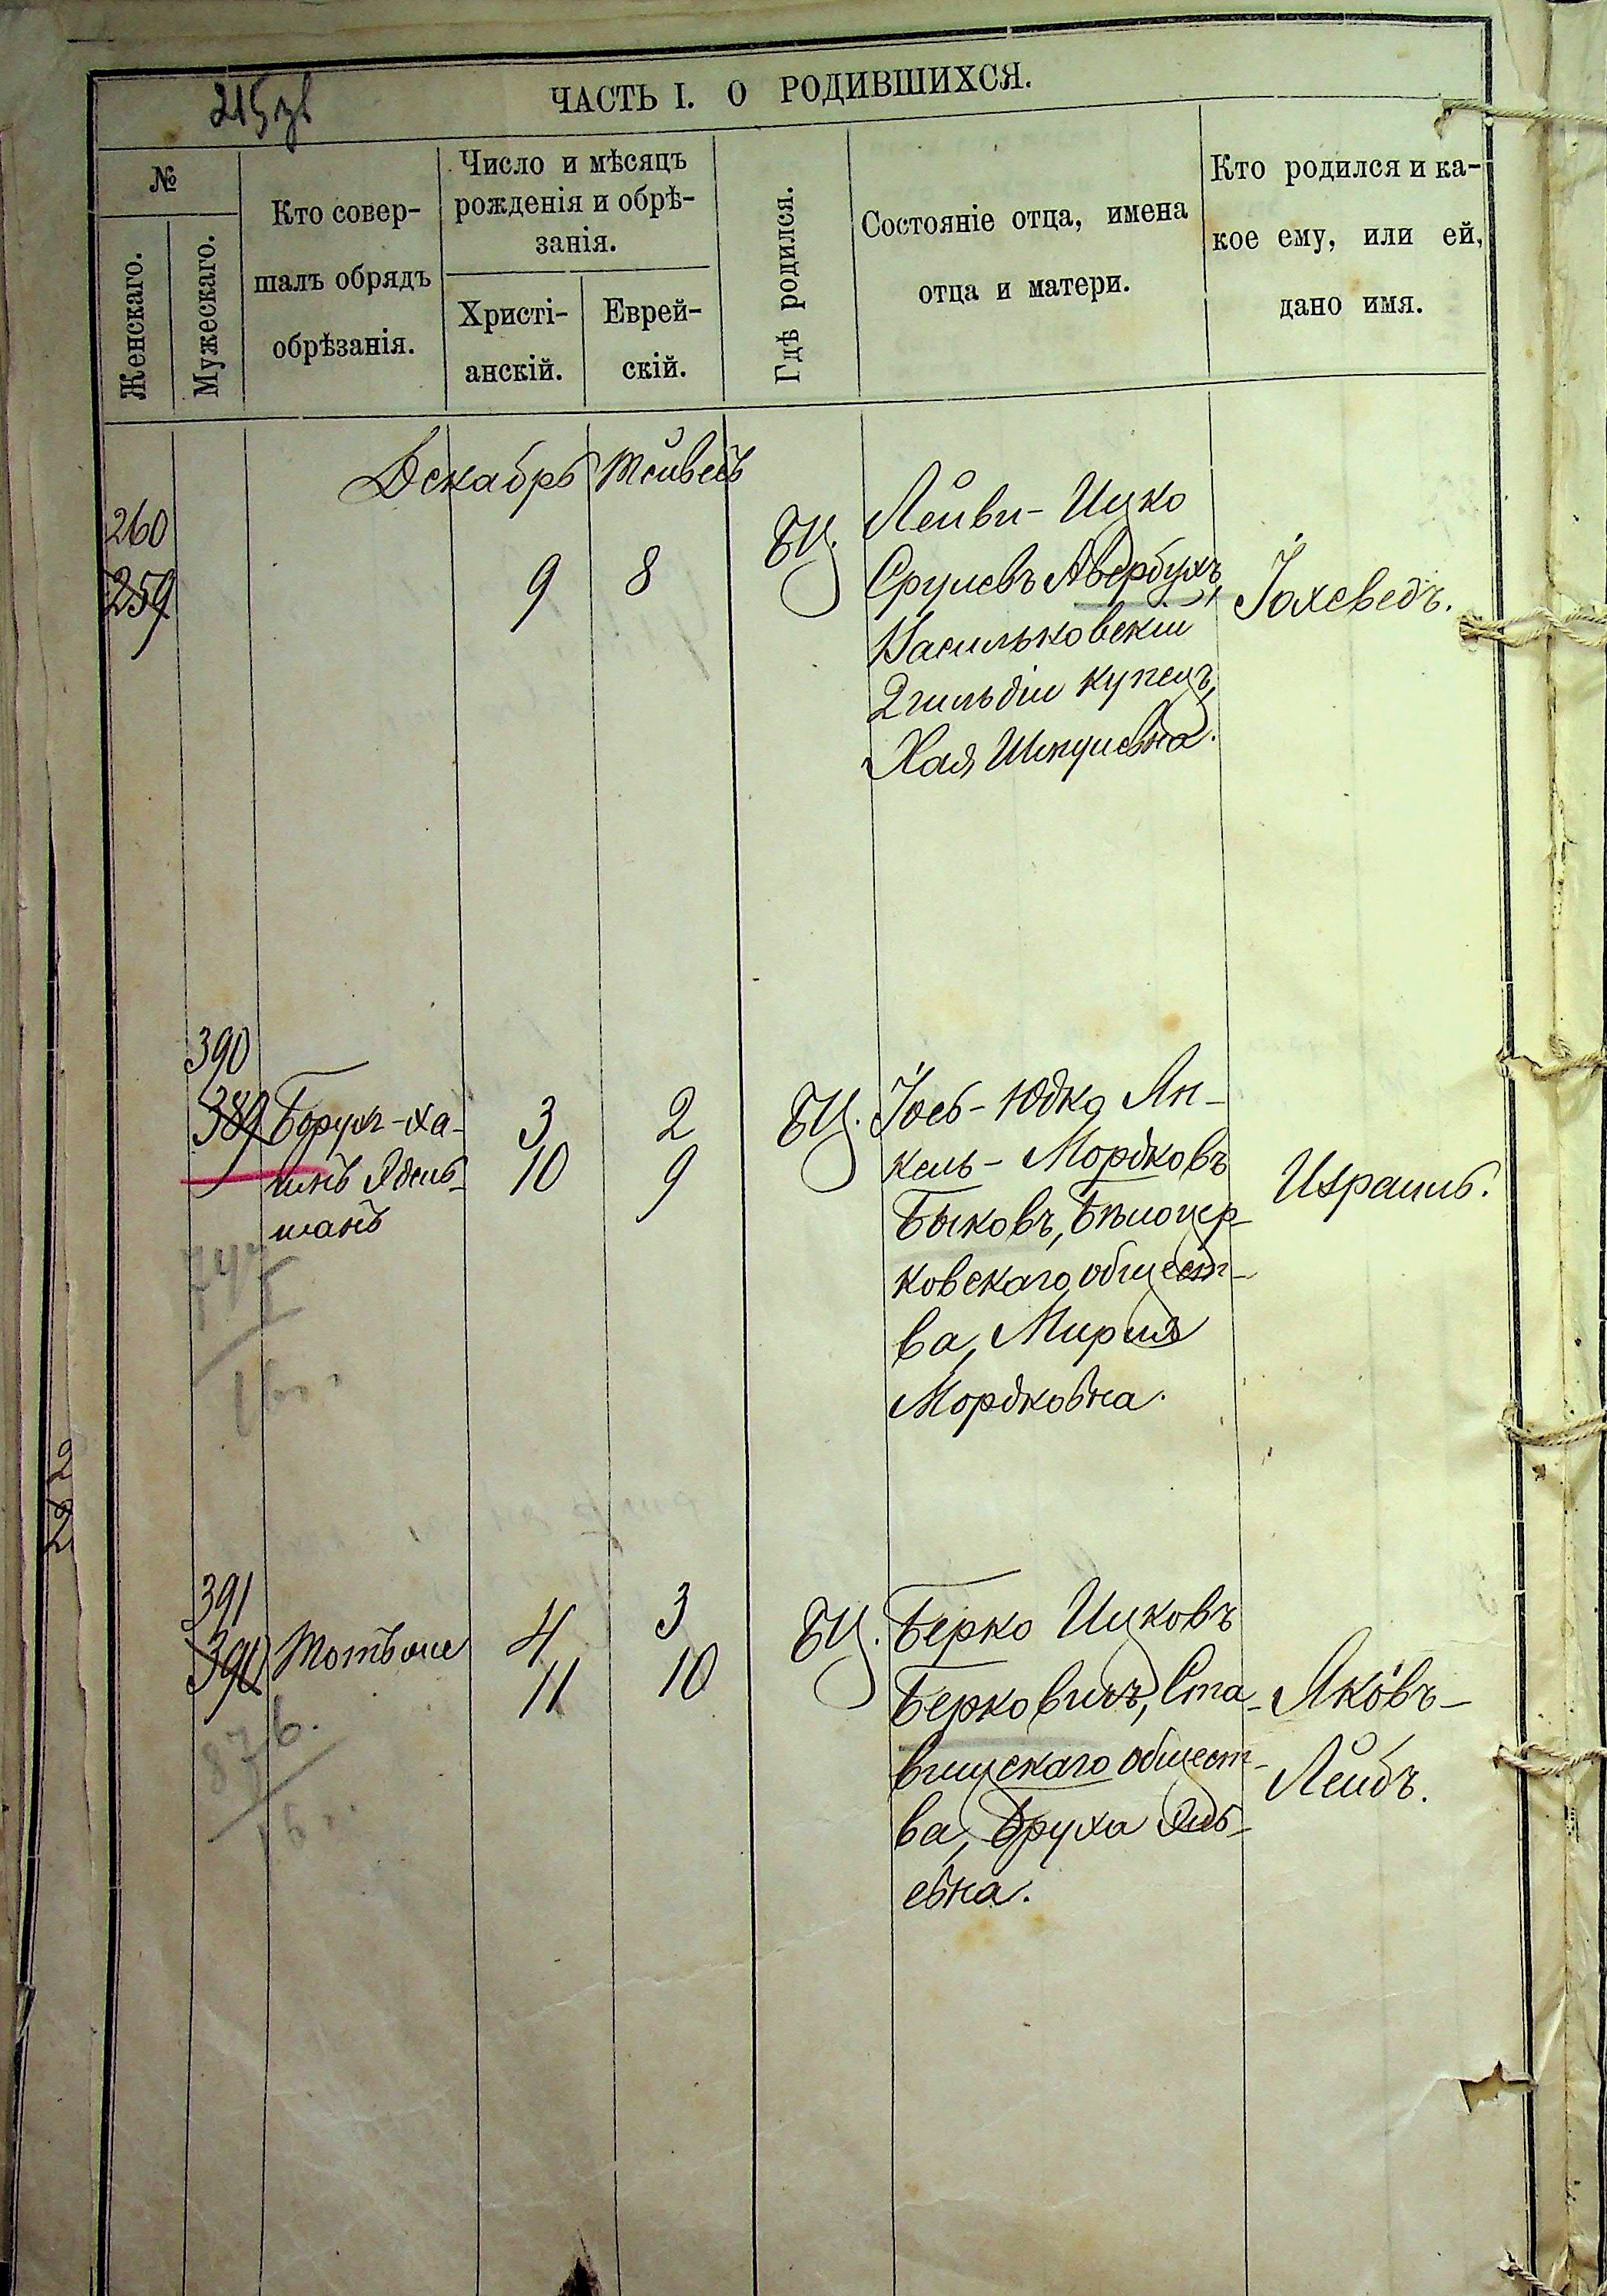 215 зв
ЧАСТЬ I. О РОДИВШИХСЯ.
№
Женскаго.
Мужескаго.
Кто совер-
шалъ обрядъ
обрѣзанія.
Число и мѣсяцъ
рожденія и обрѣ-
занія.
Христі-
анскій.
Еврей-
скій.
Гдѣ родился.
Состояніе отца, имена
отца и матери.
Кто родился и ка-
кое ему, или ей,
дано имя.
Декабрь Тейвесъ
260
259
9
8
БЦ.
Лейви-Ицко
Срулевъ Авербухъ,
Васильковскій
2 гильдіи купецъ,
Хая
Іохеведъ.
390
389
Борухъ-Ха-
имъ Эдель-
манъ
3
10
2
9
БЦ.
Іось-Юдко Ян-
кель-Мордковъ
Быковъ, Бѣлоцер-
ковскаго общест-
ва,
Мордковна.
Израиль.
391
390
4
11
3
10
БЦ.
Берко Ицковъ
Берковичъ, Ста-
вищскаго общест-
ва, Бруха Эль-
евна.
Яковъ-
Лейбъ.
2
2
876.